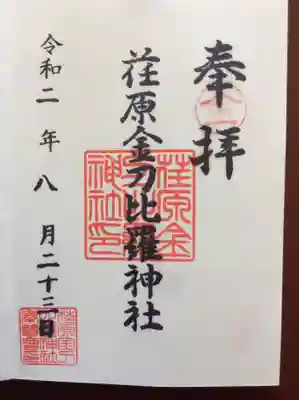 奉拝
荏原金刀比羅神社
荏原金
神社印
令和二年八月二十三日